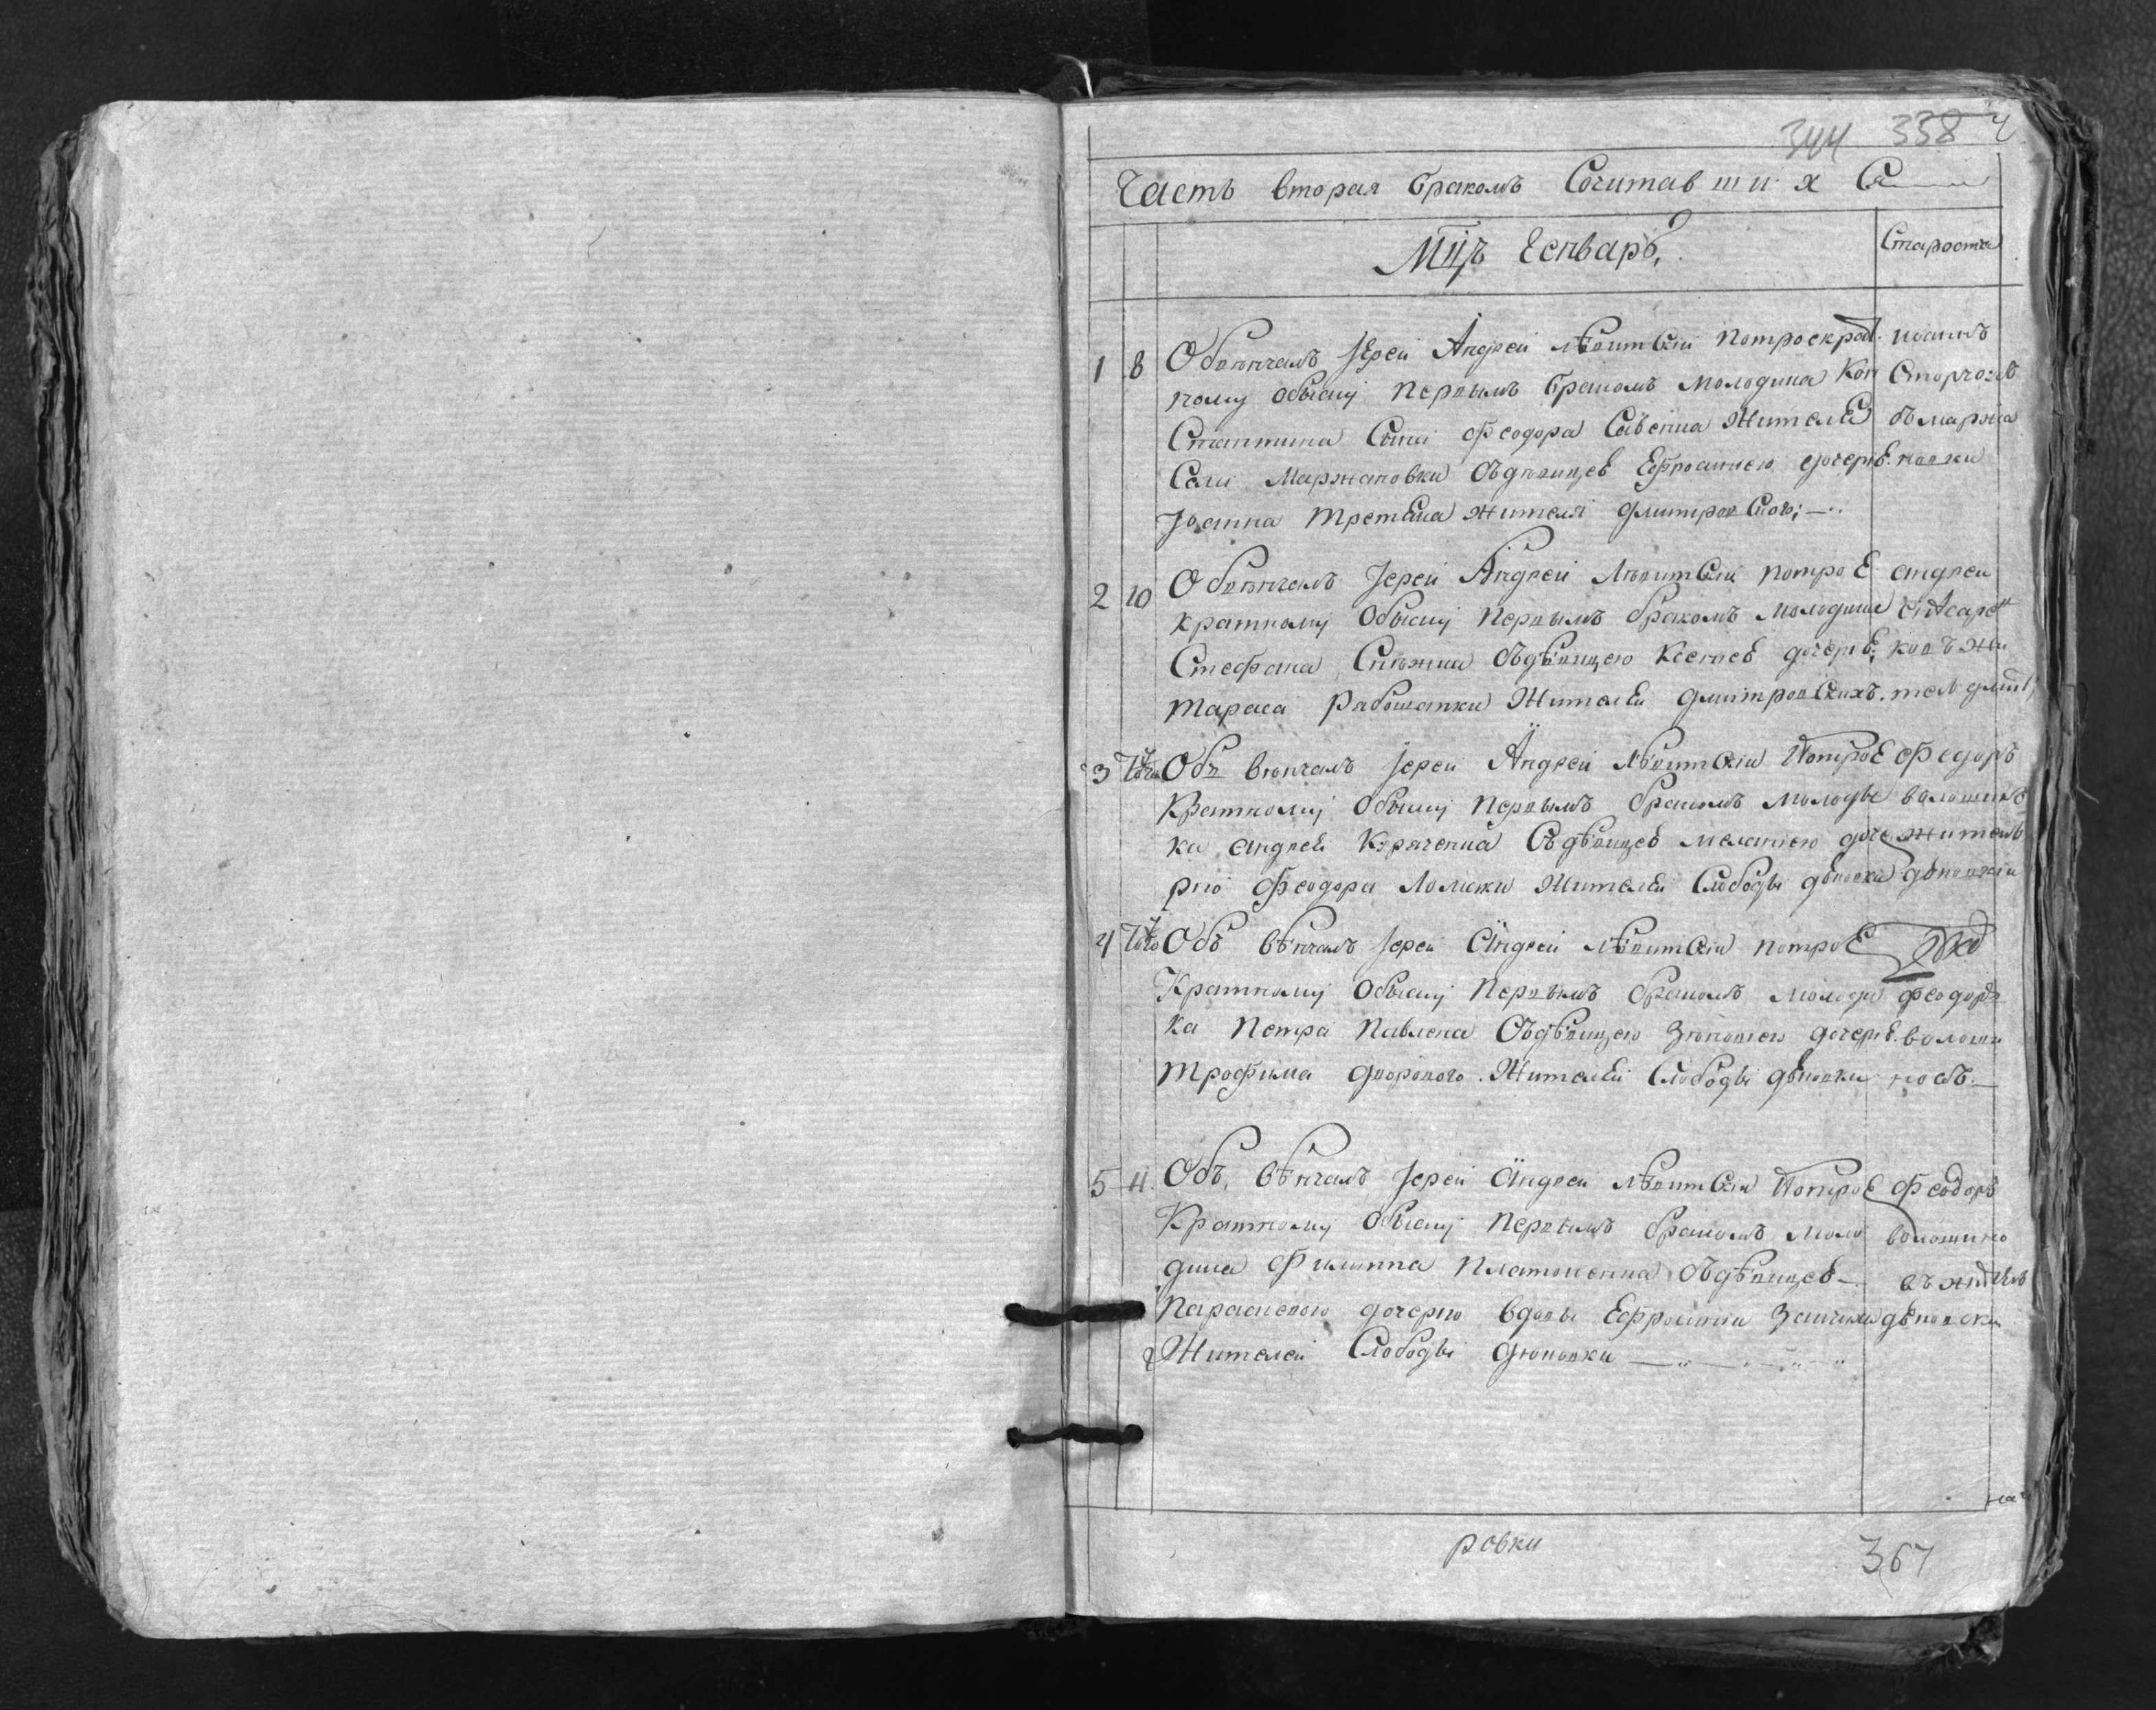 344 338
Часть вторая бракомъ Сочитавшихся
Мцъ Генварь
Староста
1 8 Обвѣнчалъ Іерей Андрей Лѣвитскій потроекрат
ному обыску первымъ бракомъ молодика Кон
стантина Сына Феодора Савенка Жителя
Села Маржановки съдѣвицею Ефросиниею дочерю
Іоанна Третяка жителя дмитров
иоаннъ
Сторчовъ
2 10 Обвѣнчалъ Іерей Андрей Лѣвитскій потрое
кратному Обыску первымъ бракомъ Молодика
Стефана съдѣвицею Ксениею дочерю
Тараса Жителей дмитровскихъ
андрей
3 Того Объ вѣнчалъ Іерей Андрей Лѣвитскій Потрое
Кратному Обыску первымъ бракомъ молоды
ка андрея Коряченка Съдѣвицею меланиею доче
рю Феодора Ломаки Жителей Слободы дѣновки
Феодоръ
волошинъ
житель
дѣновки
4 Того Объ вѣнчалъ Іерей Андрей Лѣвитскій потрое
Кратному Обыску Первымъ бракомъ молоды
ка Петра Павленка Съдѣвицею Зѣновиею дочерю
Трофима дворового Жителей Слободы дѣновки
феодоръ
волоши
новъ
5 11 Объ вѣнчалъ Іерей Андрей Лѣвитскій Потрое
Кратному Обыску первымъ бракомъ моло
дика Филиппа Платоненка съдѣвицею
Параскевою дочерю вдовы Ефросинии
Жителей Слободы дѣновки
Феодоръ
волошино
въ житель
дѣновски
ровки
367